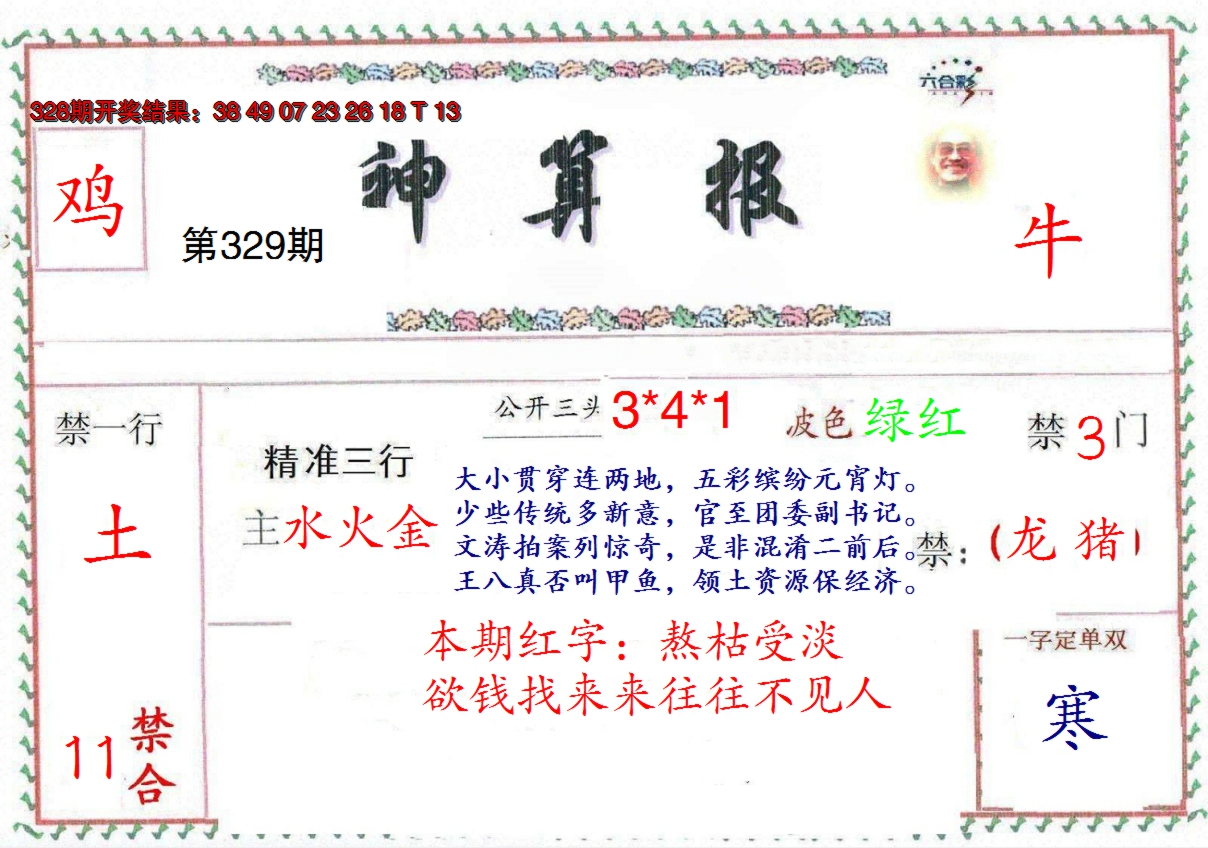 六合彩
328期开奖结果：38 49 07 23 26 18 T 13
鸡
神算报
第329期
牛
公开三头 3*4*1
波色 绿红
禁一行
禁3门
精准三行
主水火金
大小贯穿连两地，五彩缤纷元宵灯。
少些传统多新意，官至团委副书记。
文涛拍案列惊奇，是非混淆二前后。
王八真否叫甲鱼，领土资源保经济。
土
禁：（龙 猪）
本期红字：熬枯受淡
欲钱找来来往往不见人
一字定单双
寒
11禁合